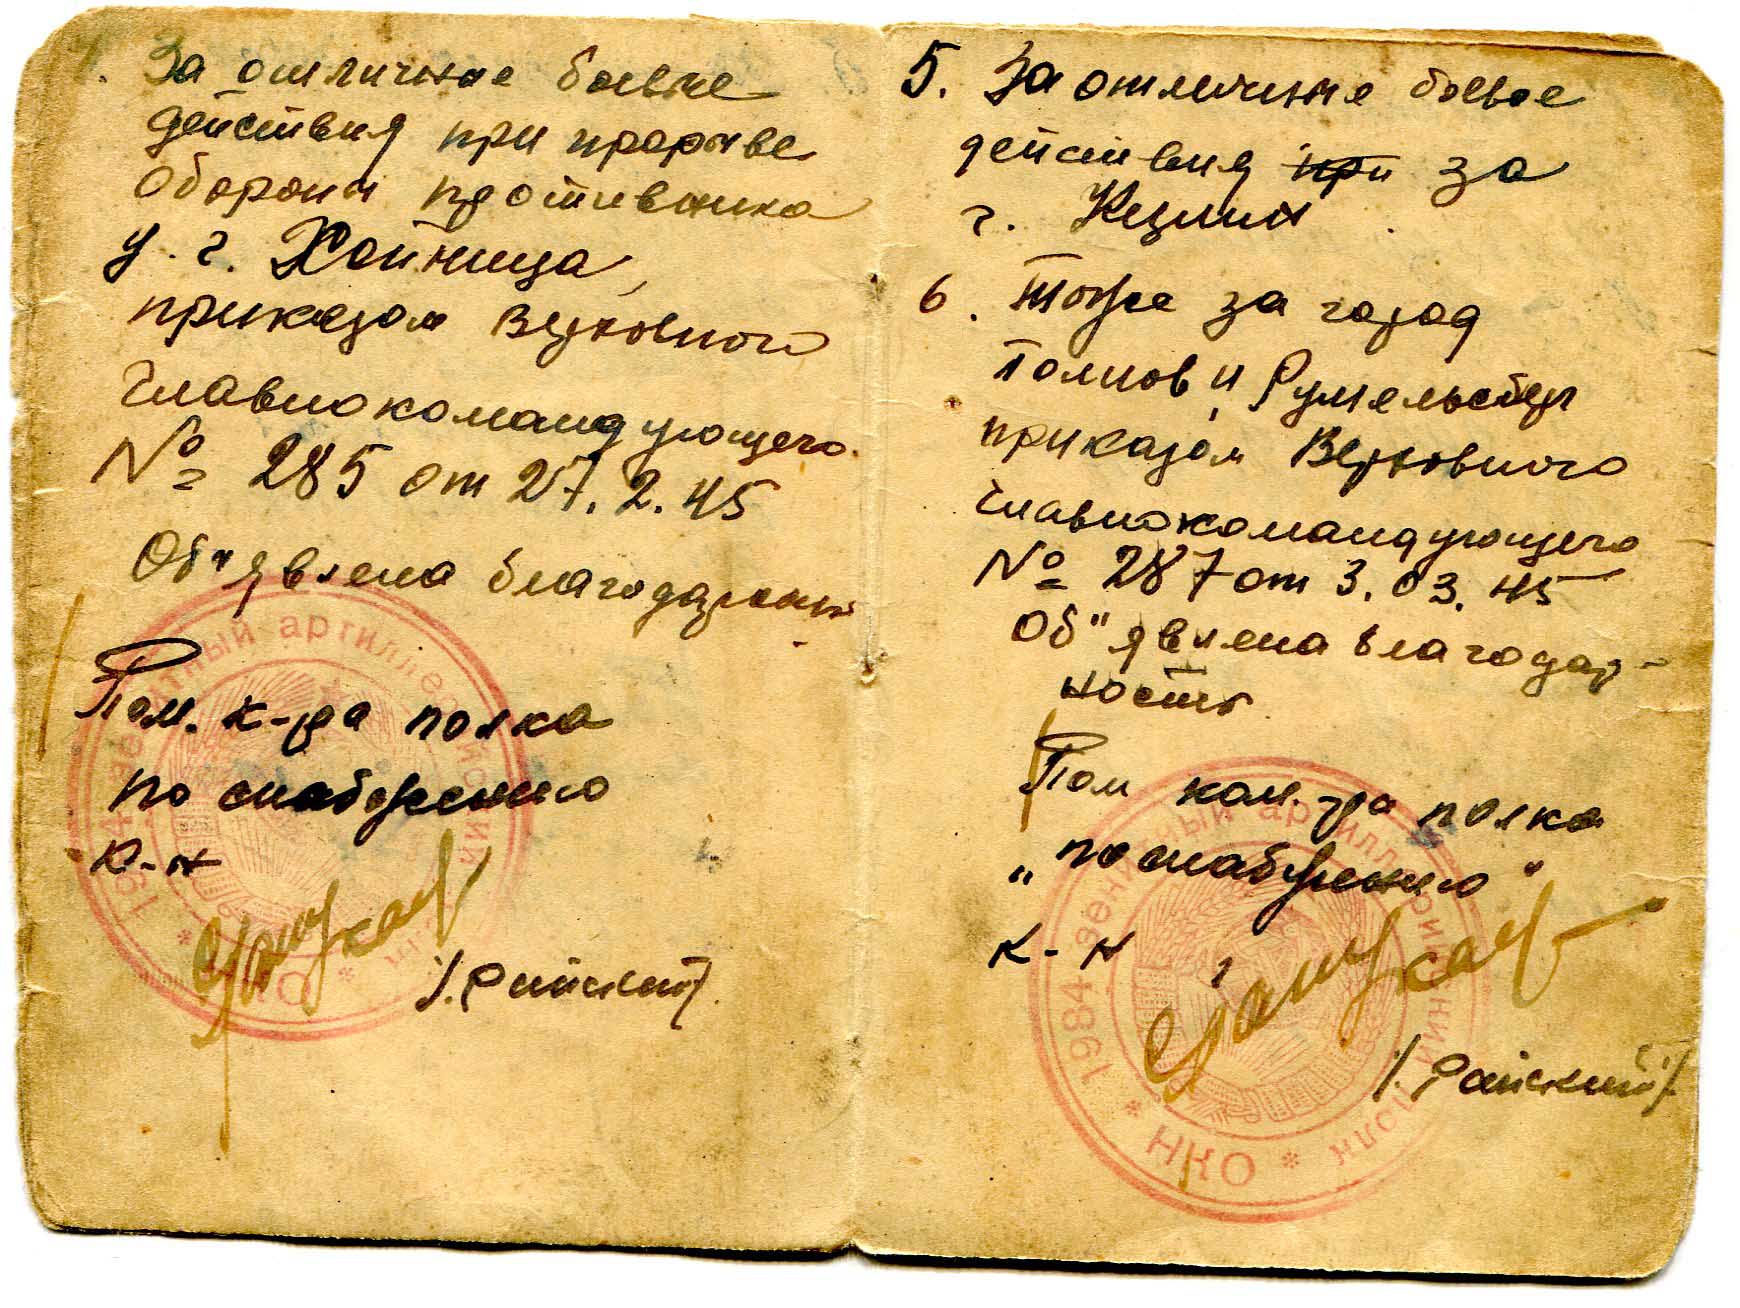 За отличные боевые
действия при прорыве
Обороны противника
у. г. Хойница,
приказом Верховного
Главнокомандующего.
№ 285 от 27.2.45
Об"явлена благодарность
Пом. к-ра полка
по снабжению
к-н
/.Райский/.
1984 зенитный артиллерийский полк * НКО *
5. За отличные боевые
действия при за
г. Кезлин.
6. Тоже за город
Полнов и Руммельсбур
приказом Верховного
Главнокомандующего
№ 287 от 3.03.45
Об"явлена благодар-
ность
Пом ком-ра полка
"по снабжению"
к-н
/.Райский/.
1984 зенитный артиллерийский полк * НКО *